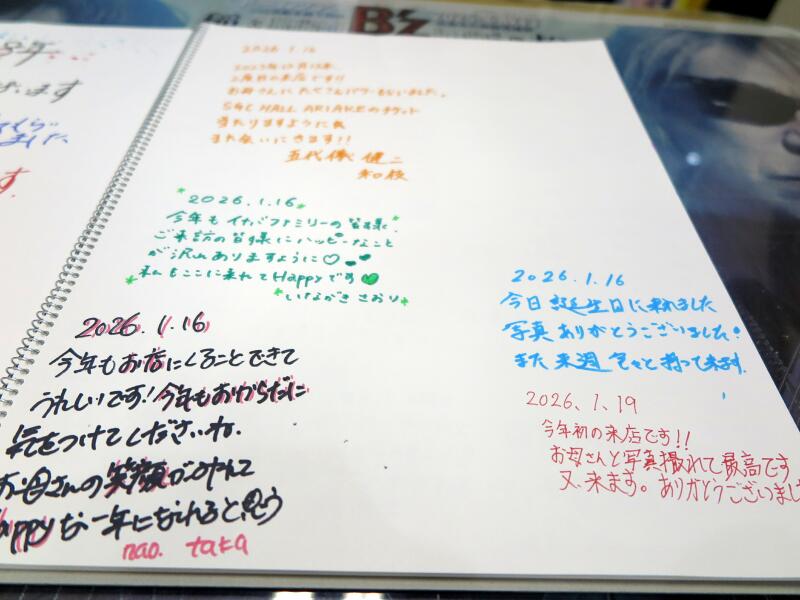 B'z
年
ます
ました
す.
2026.1.16
2023年12月以来、
2度目の来店です!!
お母さんにたくさんパワーもらいました。
SGC HALL ARIAKEのチケット
当たりますように
また会いにきます!!
健二
知枝
2026.1.16
今年もイナバファミリーの皆様、
ご来訪の皆様にハッピーなこと
が沢山ありますように♡
私もここに来れてHappyです♡
いながき さおり
2026.1.16
今年もお店にくることできて
うれしいです!今年もおからだに
気をつけてくださいね.
お母さんの笑顔がみれて
Happyな一年になれると思う
nao. taka
2026.1.16
今日誕生日に来れました
写真ありがとうございました!
また来週色々と持って来ます.
2026.1.19
今年初の来店です!!
お母さんと写真撮れて最高です
又、来ます。ありがとうございまし